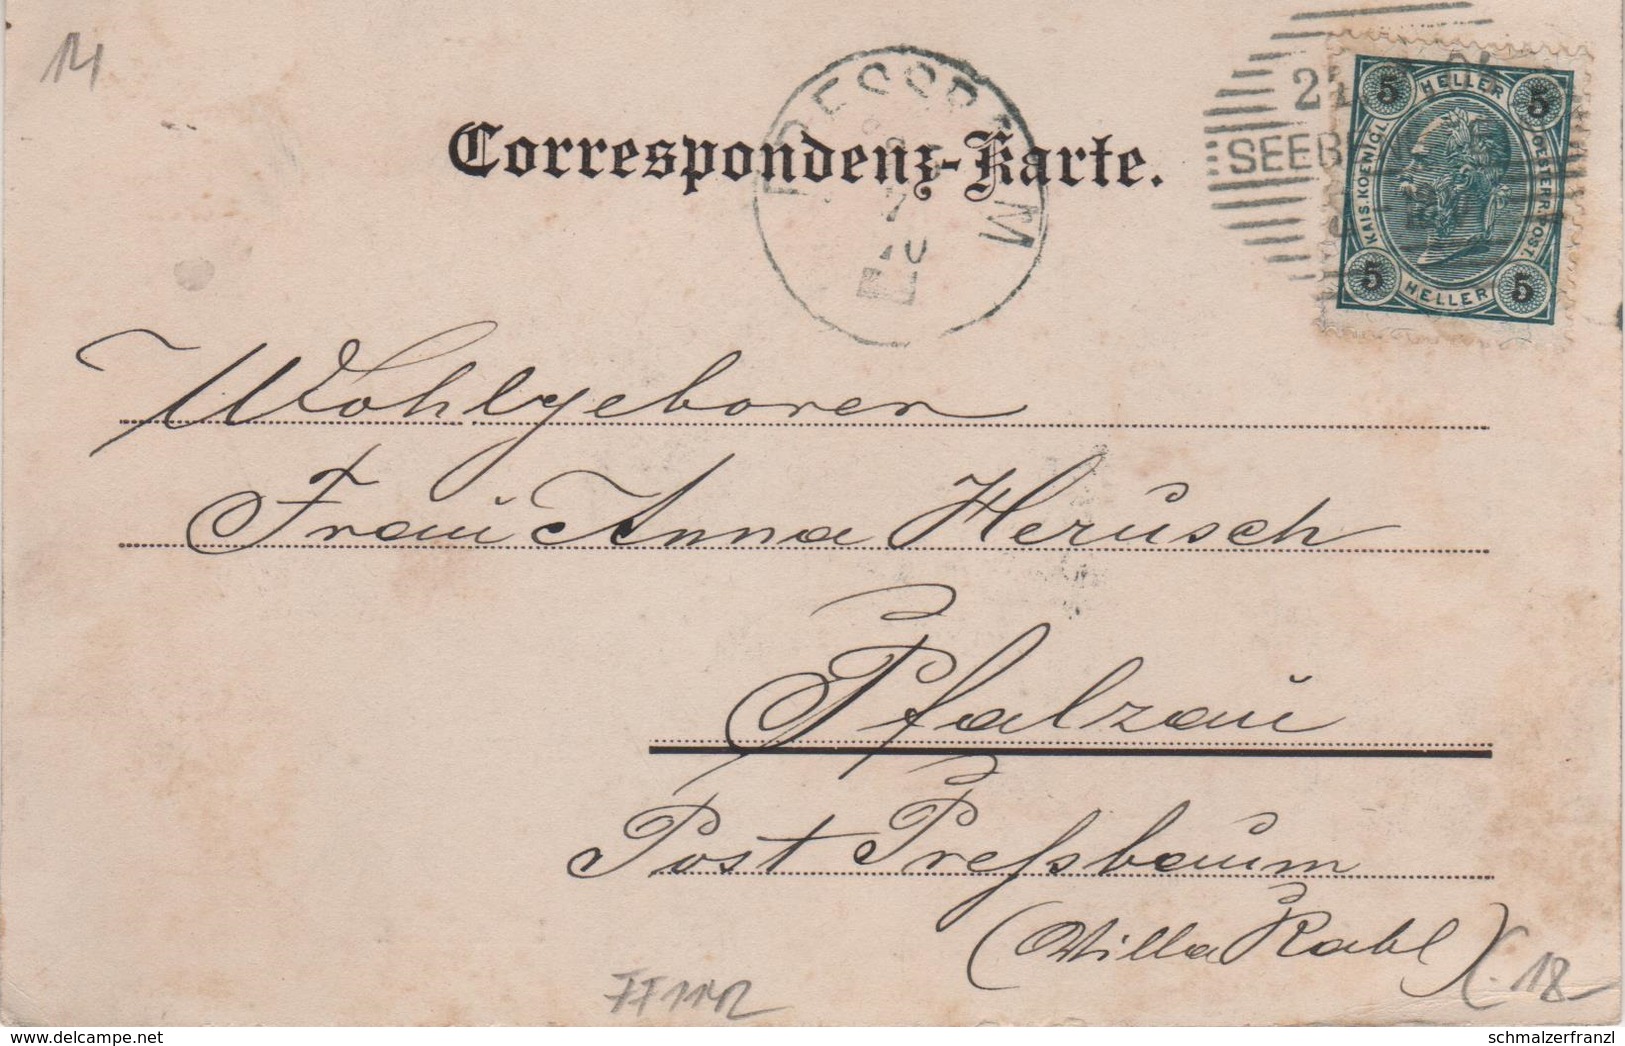 14
Correspondenz-Karte.
PRESSBAUM
7
10
25
SEEB
5 HELLER 5
KAIS.KOENIGL. OESTERR.POST.
5 HELLER 5
Wohlgeboren
Frau Anna Herusch
Pfalzau
Post Preßbaum
(Villa Rabl)
18
www.delcampe.net
schmalzerfranzl